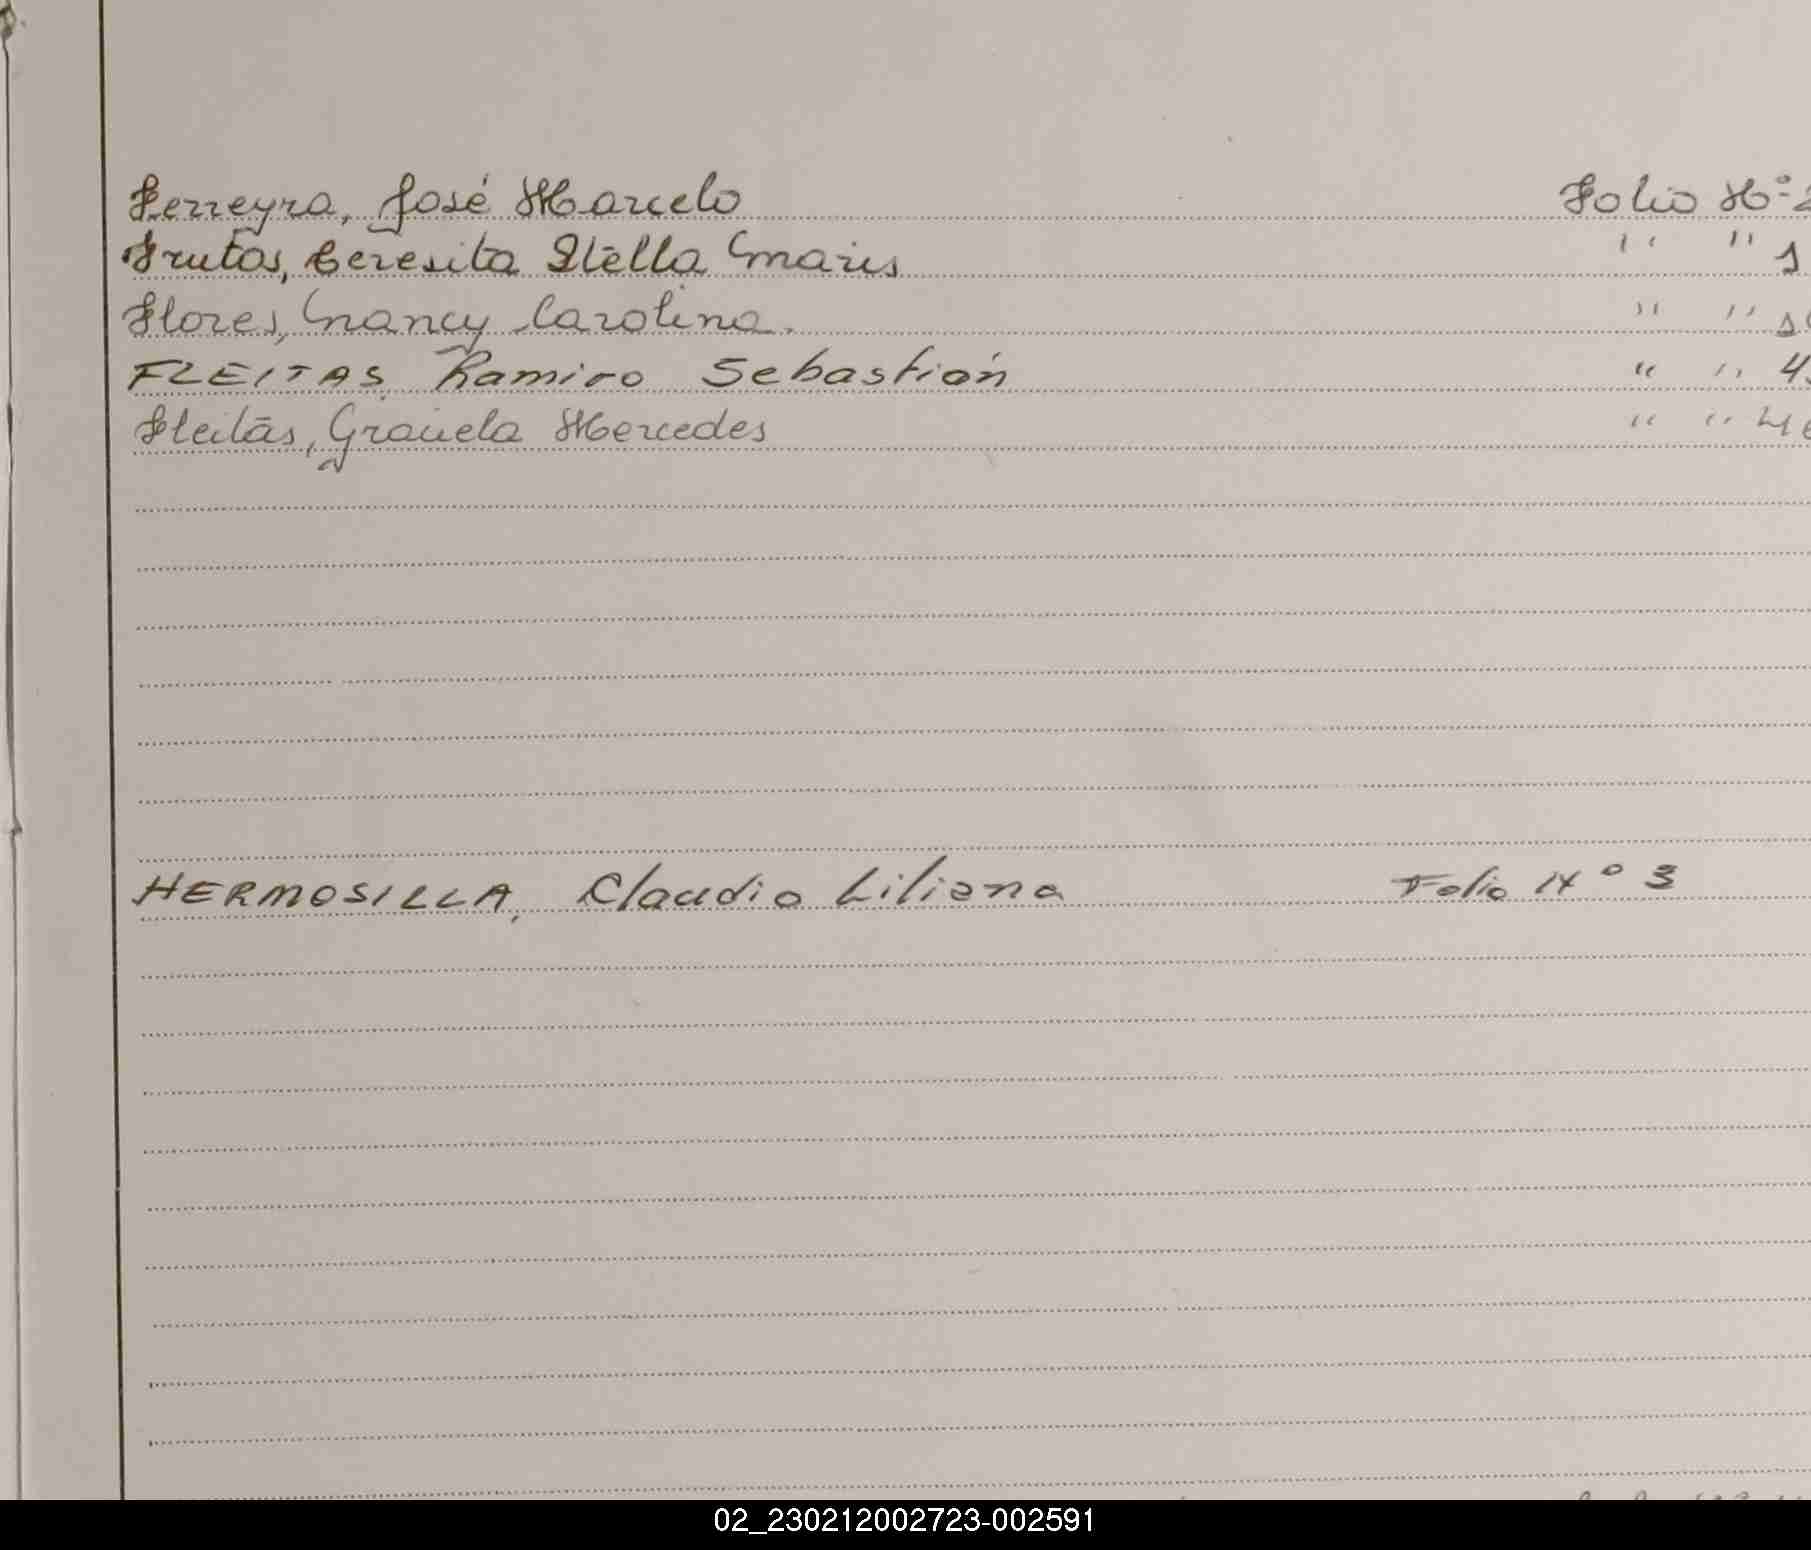 Ferreyra, José Marcelo Folio Nº 2
Frutos, Teresita Stella Maris " " 1
Flores, Nancy Carolina. " " 10
FLEITAS Ramiro Sebastián " " 4
Fleitas, Graciela Mercedes " " 4
HERMOSILLA, Claudia Liliana Folio Nº 3
02_230212002723-002591